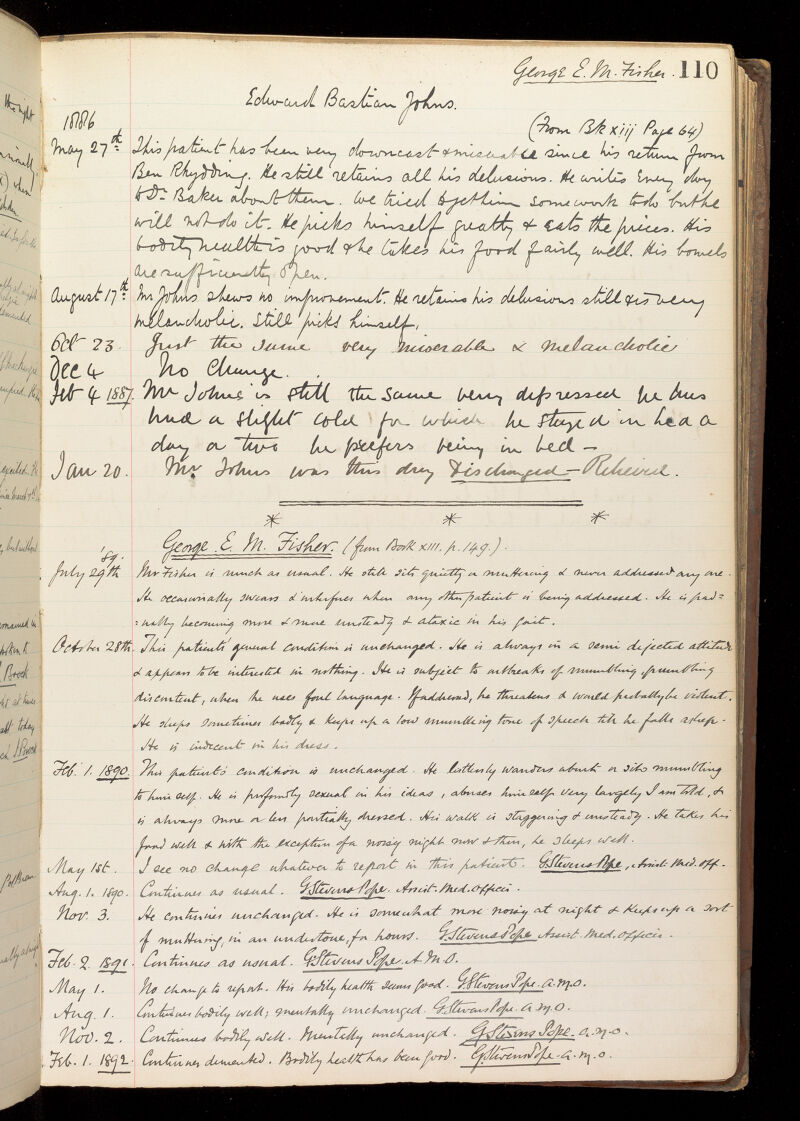 George E. M. Fisher. 110
Edward Bastian Johns.
1886
(From Bk xiij Page 64)
May 27th This patient has been very downcast & miserable since his return from
Ben Rhydding. He still retains all his delusions. He writes every day
to Dr Baker about them. We tried to get him some work to do but he
will not do it. He picks himself greatly & eats the pieces. His
bodily health is good & he takes his food fairly well. His bowels
are sufficiently open.
August 17th Mr Johns shews no improvement. He retains his delusions still & is very
melancholic. Still picks himself.
Oct 23. Just the same very miserable & melancholic
Dec 4 No Change.
Feb 4 1887. Mr Johns is still the same very depressed he has
had a slight cold for which he stayed in bed a
day or two he prefers being in bed —
Jan 20. Mr Johns was this day Discharged — Relieved.
* * *
George E. M. Fisher. (from Book XIII. p. 149.).
'89.
July 29th Mr Fisher is much as usual. He still sits quietly or muttering & never addresses any one.
He occasionally swears & interferes when any other patient is being addressed. He is grad=
=ually becoming more & more unsteady & ataxic in his gait.
October 28th. This patient's general condition is unchanged. He is always in a semi dejected attitude
& appears to be interested in nothing. He is subject to outbreaks of mumbling, grumbling
discontent, when he uses foul language. If addressed, he threatens & would probably be violent.
He sleeps sometimes badly & keeps up a low mumbling tone of speech till he falls asleep.
He is indecent in his dress.
Feb. 1. 1890. This patient's condition is unchanged. He listlessly wanders about or sits mumbling
to himself. He is profoundly sexual in his ideas, abuses himself very largely I am told, &
is always more or less partially dressed. His walk is staggering & unsteady. He takes his
food well & with the exception of a noisy night now & then, he sleeps well.
May 1st. I see no change whatever to report in this patient. G. Stevens Pope, Assist. Med. Off.
Aug. 1. 1890. Continues as usual. G. Stevens Pope. Assist. Med. Officer.
Nov. 3. He continues unchanged. He is somewhat more noisy at night & keeps up a sort
of muttering, in an undertone, for hours. G. Stevens Pope Assist. Med. Officer.
Feb. 2. 1891. Continues as usual. G. Stevens Pope. A.M.O.
May 1. No change to report. His bodily health seems good. G. Stevens Pope. A.M.O.
Aug. 1. Continues bodily well; mentally unchanged. G. Stevens Pope. A.M.O.
Nov. 2. Continues bodily well. Mentally unchanged. G. Stevens Pope. A.M.O.
Feb. 1. 1892. Continues demented. Bodily health has been good. G. Stevens Pope. A.M.O.